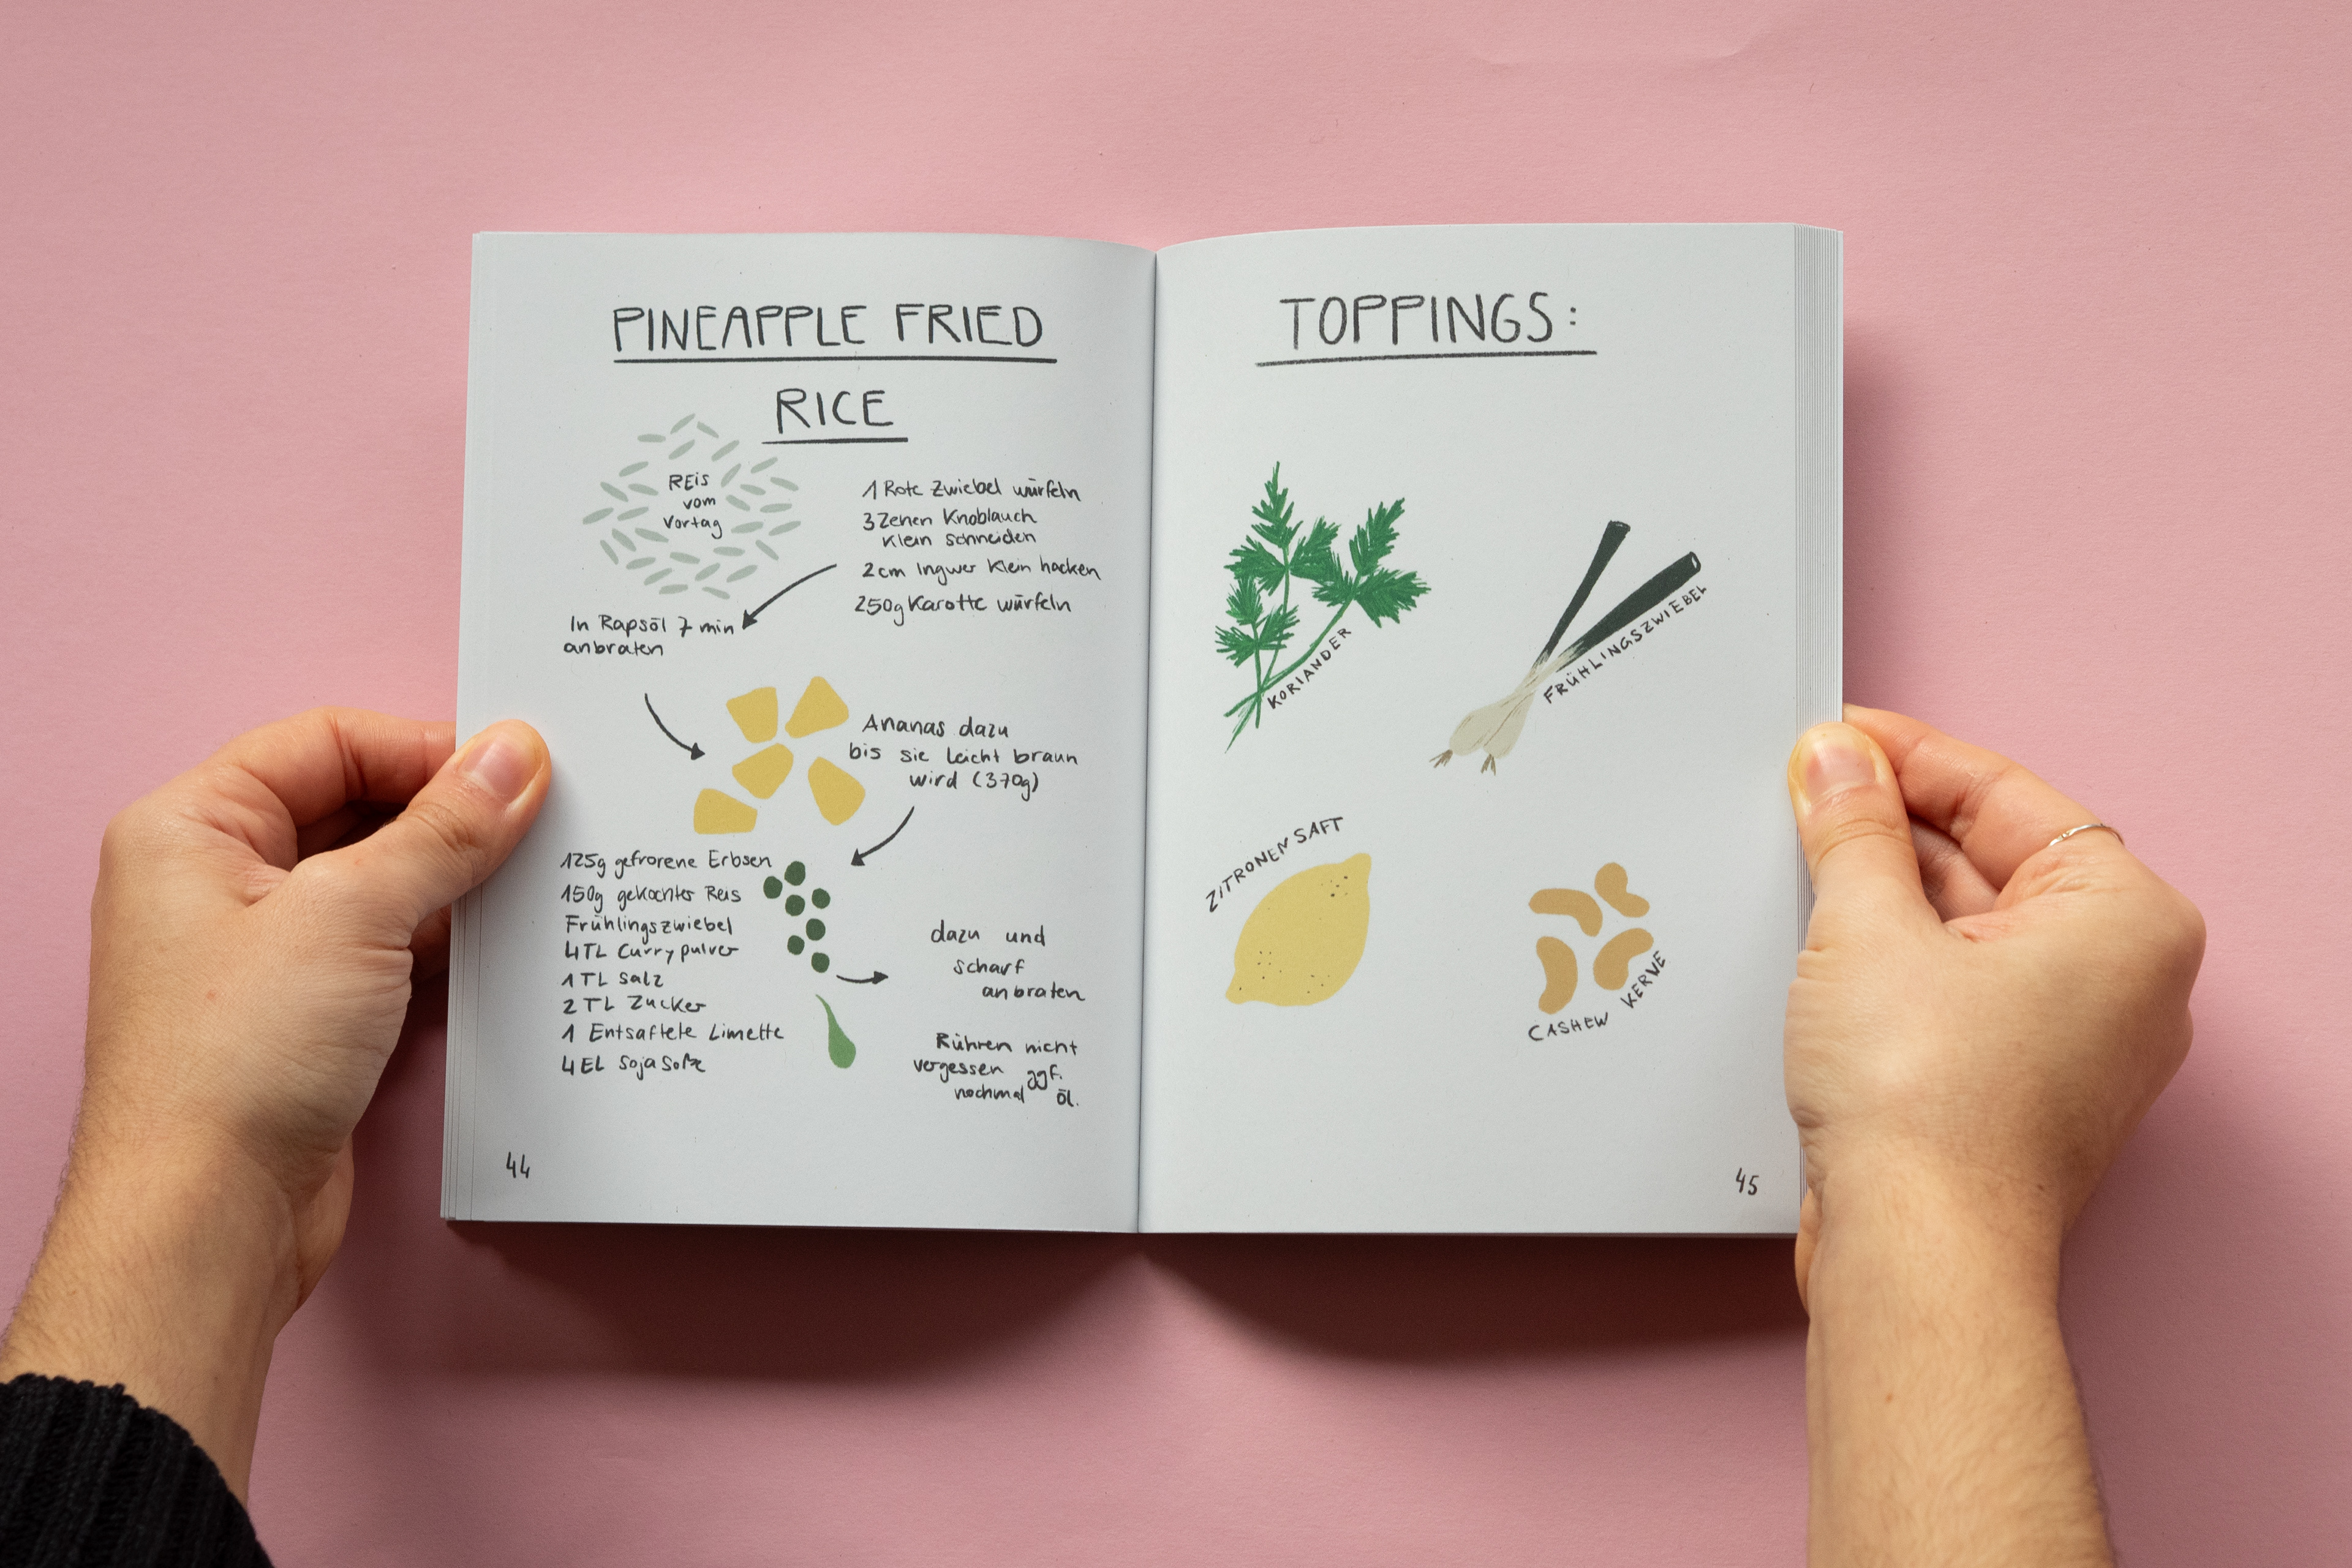 PINEAPPLE FRIED
RICE
REiS
vom
Vortag
1 Rote Zwiebel würfeln
3 Zehen Knoblauch
klein schneiden
2cm Ingwer klein hacken
250g Karotte würfeln
In Rapsöl 7 min
anbraten
Ananas dazu
bis sie leicht braun
wird (370g)
125g gefrorene Erbsen
150g gekochter Reis
Frühlingszwiebel
4TL Currypulver
1 TL Salz
2 TL Zucker
1 Entsaftete Limette
4 EL Soja Soße
dazu und
scharf
anbraten
Rühren nicht
vergessen ggf.
nochmal öl.
44
TOPPINGS:
KORIANDER
FRÜHLINGSZWIEBEL
ZITRONEN SAFT
CASHEW KERNE
45